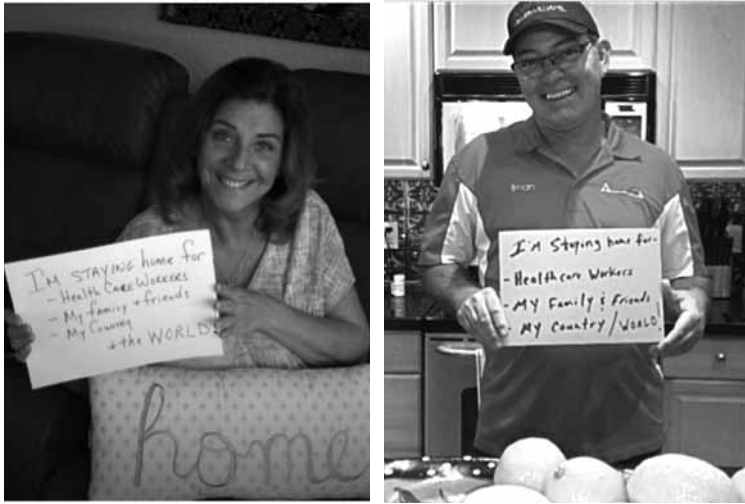 I'm STAYING home for
- HealthCare Workers
- My family + friends
- My Country
+ the WORLD!
home
Brian
I'm Staying home for-
- Healthcare Workers
- My Family & Friends
- My Country/WORLD!